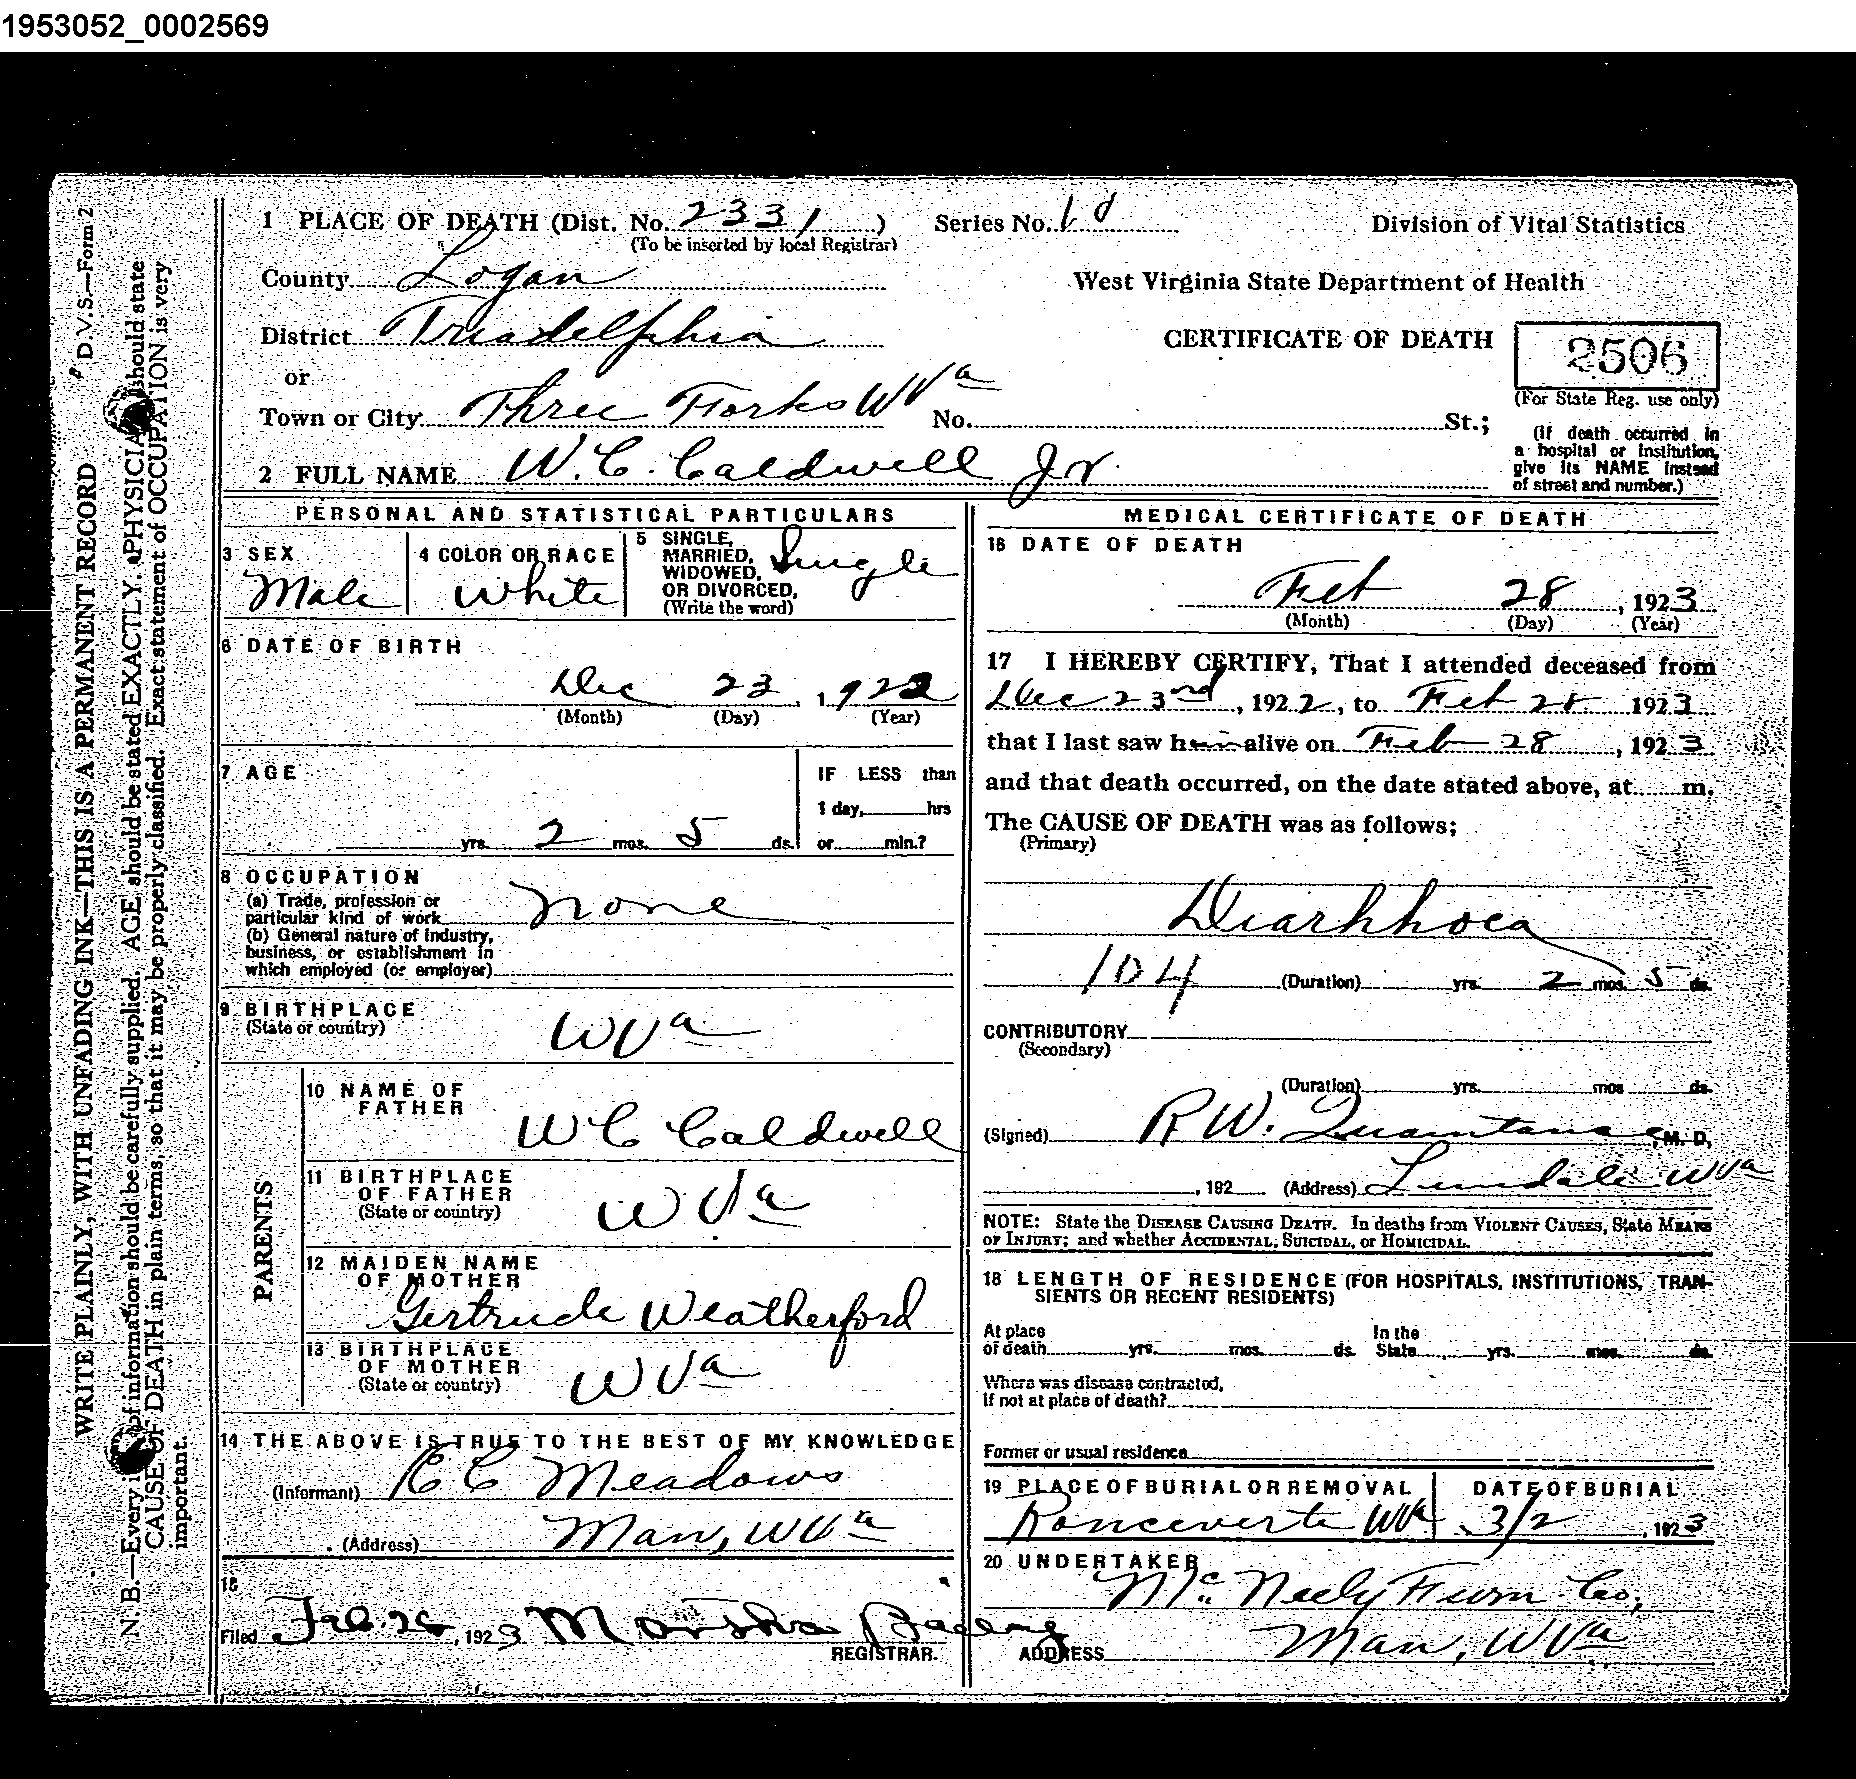 1953052_0002569
D.V.S.—Form 2
WRITE PLAINLY, WITH UNFADING INK—THIS IS A PERMANENT RECORD
N. B.—Every of information should be carefully supplied. AGE should be stated EXACTLY. PHYSICIA should state
CAUSE OF DEATH in plain terms, so that it may be properly classified. Exact statement of OCCUPATION is very
important.
1 PLACE OF DEATH (Dist. No. 2331 ) Series No. 10 Division of Vital Statistics
(To be inserted by local Registrar)
County Logan West Virginia State Department of Health
District Triadelphia CERTIFICATE OF DEATH 2506
or
(For State Reg. use only)
Town or City Three Forks W Va No. St.;
(If death occurred in
a hospital or institution,
give its NAME instead
of street and number.)
2 FULL NAME W. C. Caldwell Jr.
PERSONAL AND STATISTICAL PARTICULARS
3 SEX
Male
4 COLOR OR RACE
White
5 SINGLE,
MARRIED,
WIDOWED,
OR DIVORCED,
(Write the word)
Single
6 DATE OF BIRTH
Dec 23, 1922
(Month) (Day) (Year)
7 AGE
IF LESS than
1 day, hrs
yrs. 2 mos. 5 ds. or min.?
8 OCCUPATION
(a) Trade, profession or
particular kind of work none
(b) General nature of industry,
business, or establishment in
which employed (or employer)
9 BIRTHPLACE
(State or country) W Va
PARENTS
10 NAME OF
FATHER
W C Caldwell
11 BIRTHPLACE
OF FATHER
(State or country) W Va
12 MAIDEN NAME
OF MOTHER
Gertrude Weatherford
13 BIRTHPLACE
OF MOTHER
(State or country) W Va
14 THE ABOVE IS TRUE TO THE BEST OF MY KNOWLEDGE
(Informant) Meadows
(Address) Man, W Va
15
Filed Feb. , 1923 Martha
REGISTRAR.
MEDICAL CERTIFICATE OF DEATH
16 DATE OF DEATH
Feb 28, 1923
(Month) (Day) (Year)
17 I HEREBY CERTIFY, That I attended deceased from
Dec 23rd, 1922, to Feb 28 1923
that I last saw him alive on Feb 28, 1923
and that death occurred, on the date stated above, at m.
The CAUSE OF DEATH was as follows;
(Primary)
Diarhhoea
104 (Duration) yrs. 2 mos. 5 ds.
CONTRIBUTORY
(Secondary)
(Duration) yrs. mos ds.
(Signed) R W. , M. D.
, 192 (Address) Lundale W Va
NOTE: State the DISEASE CAUSING DEATH. In deaths from VIOLENT CAUSES, State MEANS
OF INJURY; and whether ACCIDENTAL, SUICIDAL, or HOMICIDAL.
18 LENGTH OF RESIDENCE (FOR HOSPITALS, INSTITUTIONS, TRAN-
SIENTS OR RECENT RESIDENTS)
At place In the
of death yrs. mos. ds. State yrs. mos. ds.
Where was disease contracted,
If not at place of death?
Former or usual residence
19 PLACE OF BURIAL OR REMOVAL
Ronceverte W Va
DATE OF BURIAL
3/2, 1923
20 UNDERTAKER
McNeely Furn Co,
ADDRESS Man, W Va